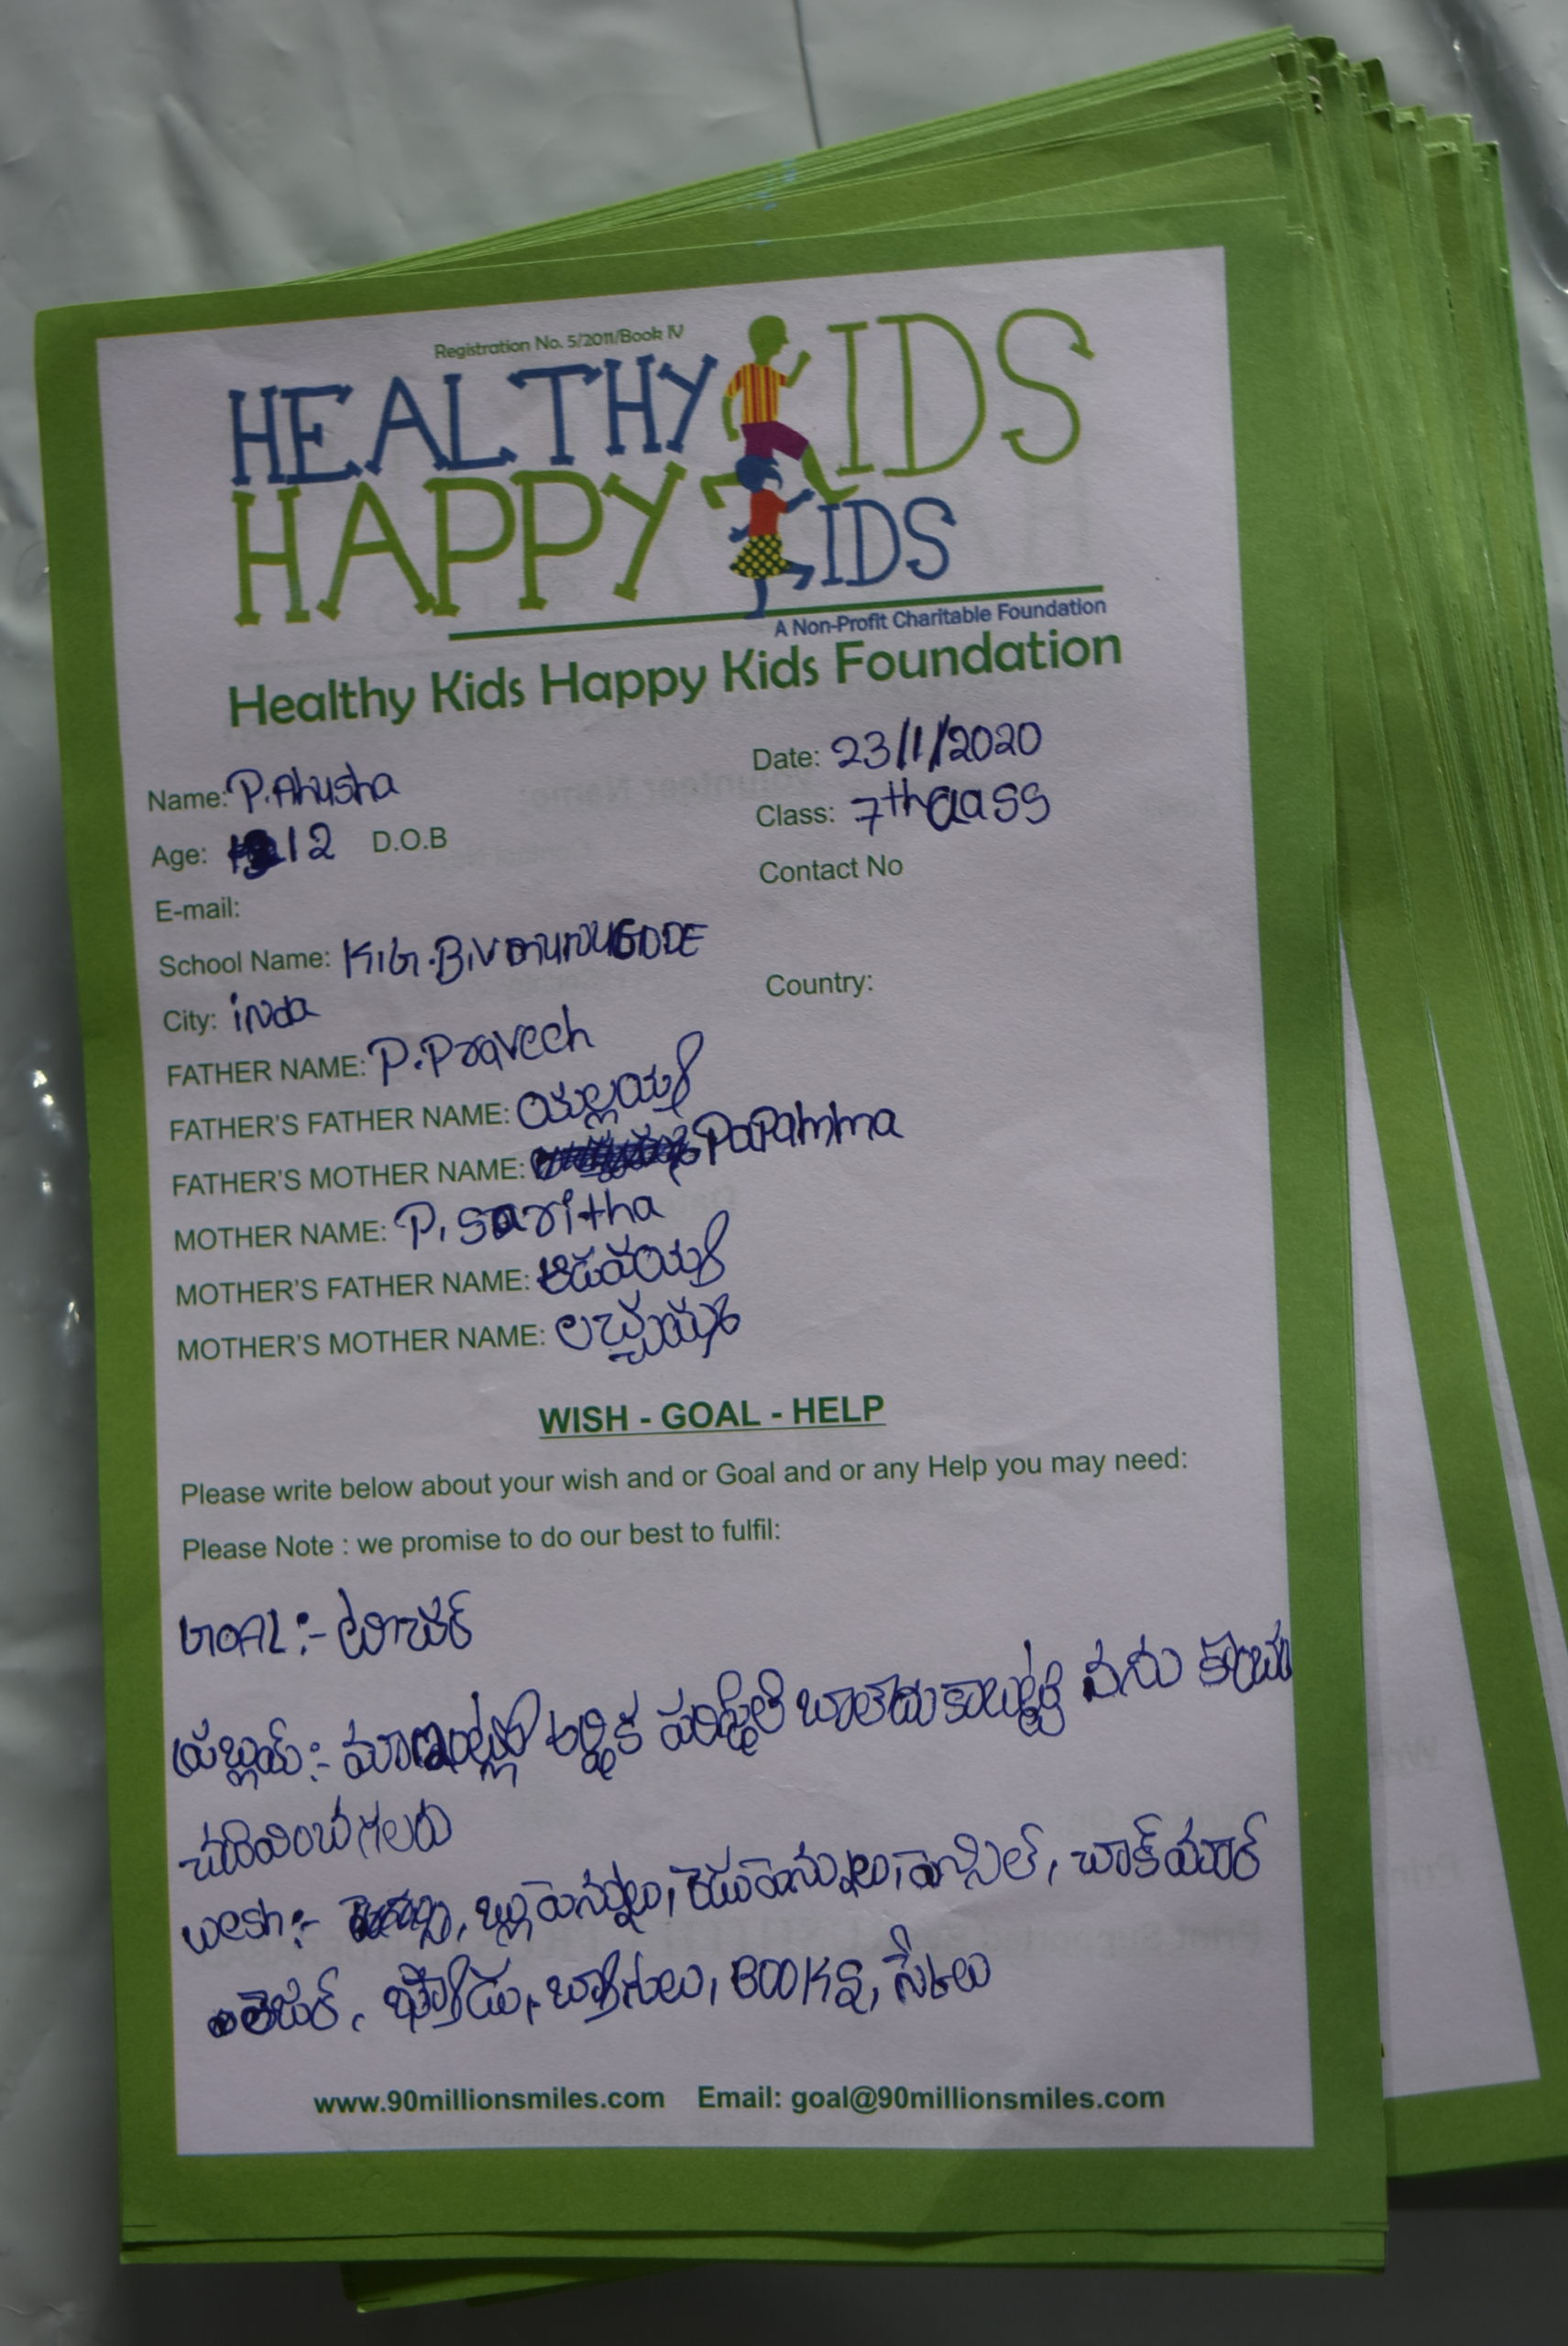 Registration No. 5/2011/Book IV
HEALTHY KIDS
HAPPY KIDS
A Non-Profit Charitable Foundation
Healthy Kids Happy Kids Foundation
Name: P.Anusha Date: 23/1/2020
Age: 12 D.O.B Class: 7th class
E-mail: Contact No
School Name: K.G.B.V
City: inda Country:
FATHER NAME: P.Praveech
FATHER'S FATHER NAME: యల్లయ్య
FATHER'S MOTHER NAME: PaPamma
MOTHER NAME: P. saritha
MOTHER'S FATHER NAME:
MOTHER'S MOTHER NAME: లచ్చమ్మ
WISH - GOAL - HELP
Please write below about your wish and or Goal and or any Help you may need:
Please Note : we promise to do our best to fulfil:
GOAL :- టీచర్
:- మా ఆర్థిక పరిస్థితి బాలేదు కాబట్టి నను
చదివించగలరు
wesh :- బ్లుపెన్నులు, రెడుపెన్నులు, పెన్సిల్,
BOOKS,
www.90millionsmiles.com Email: goal@90millionsmiles.com